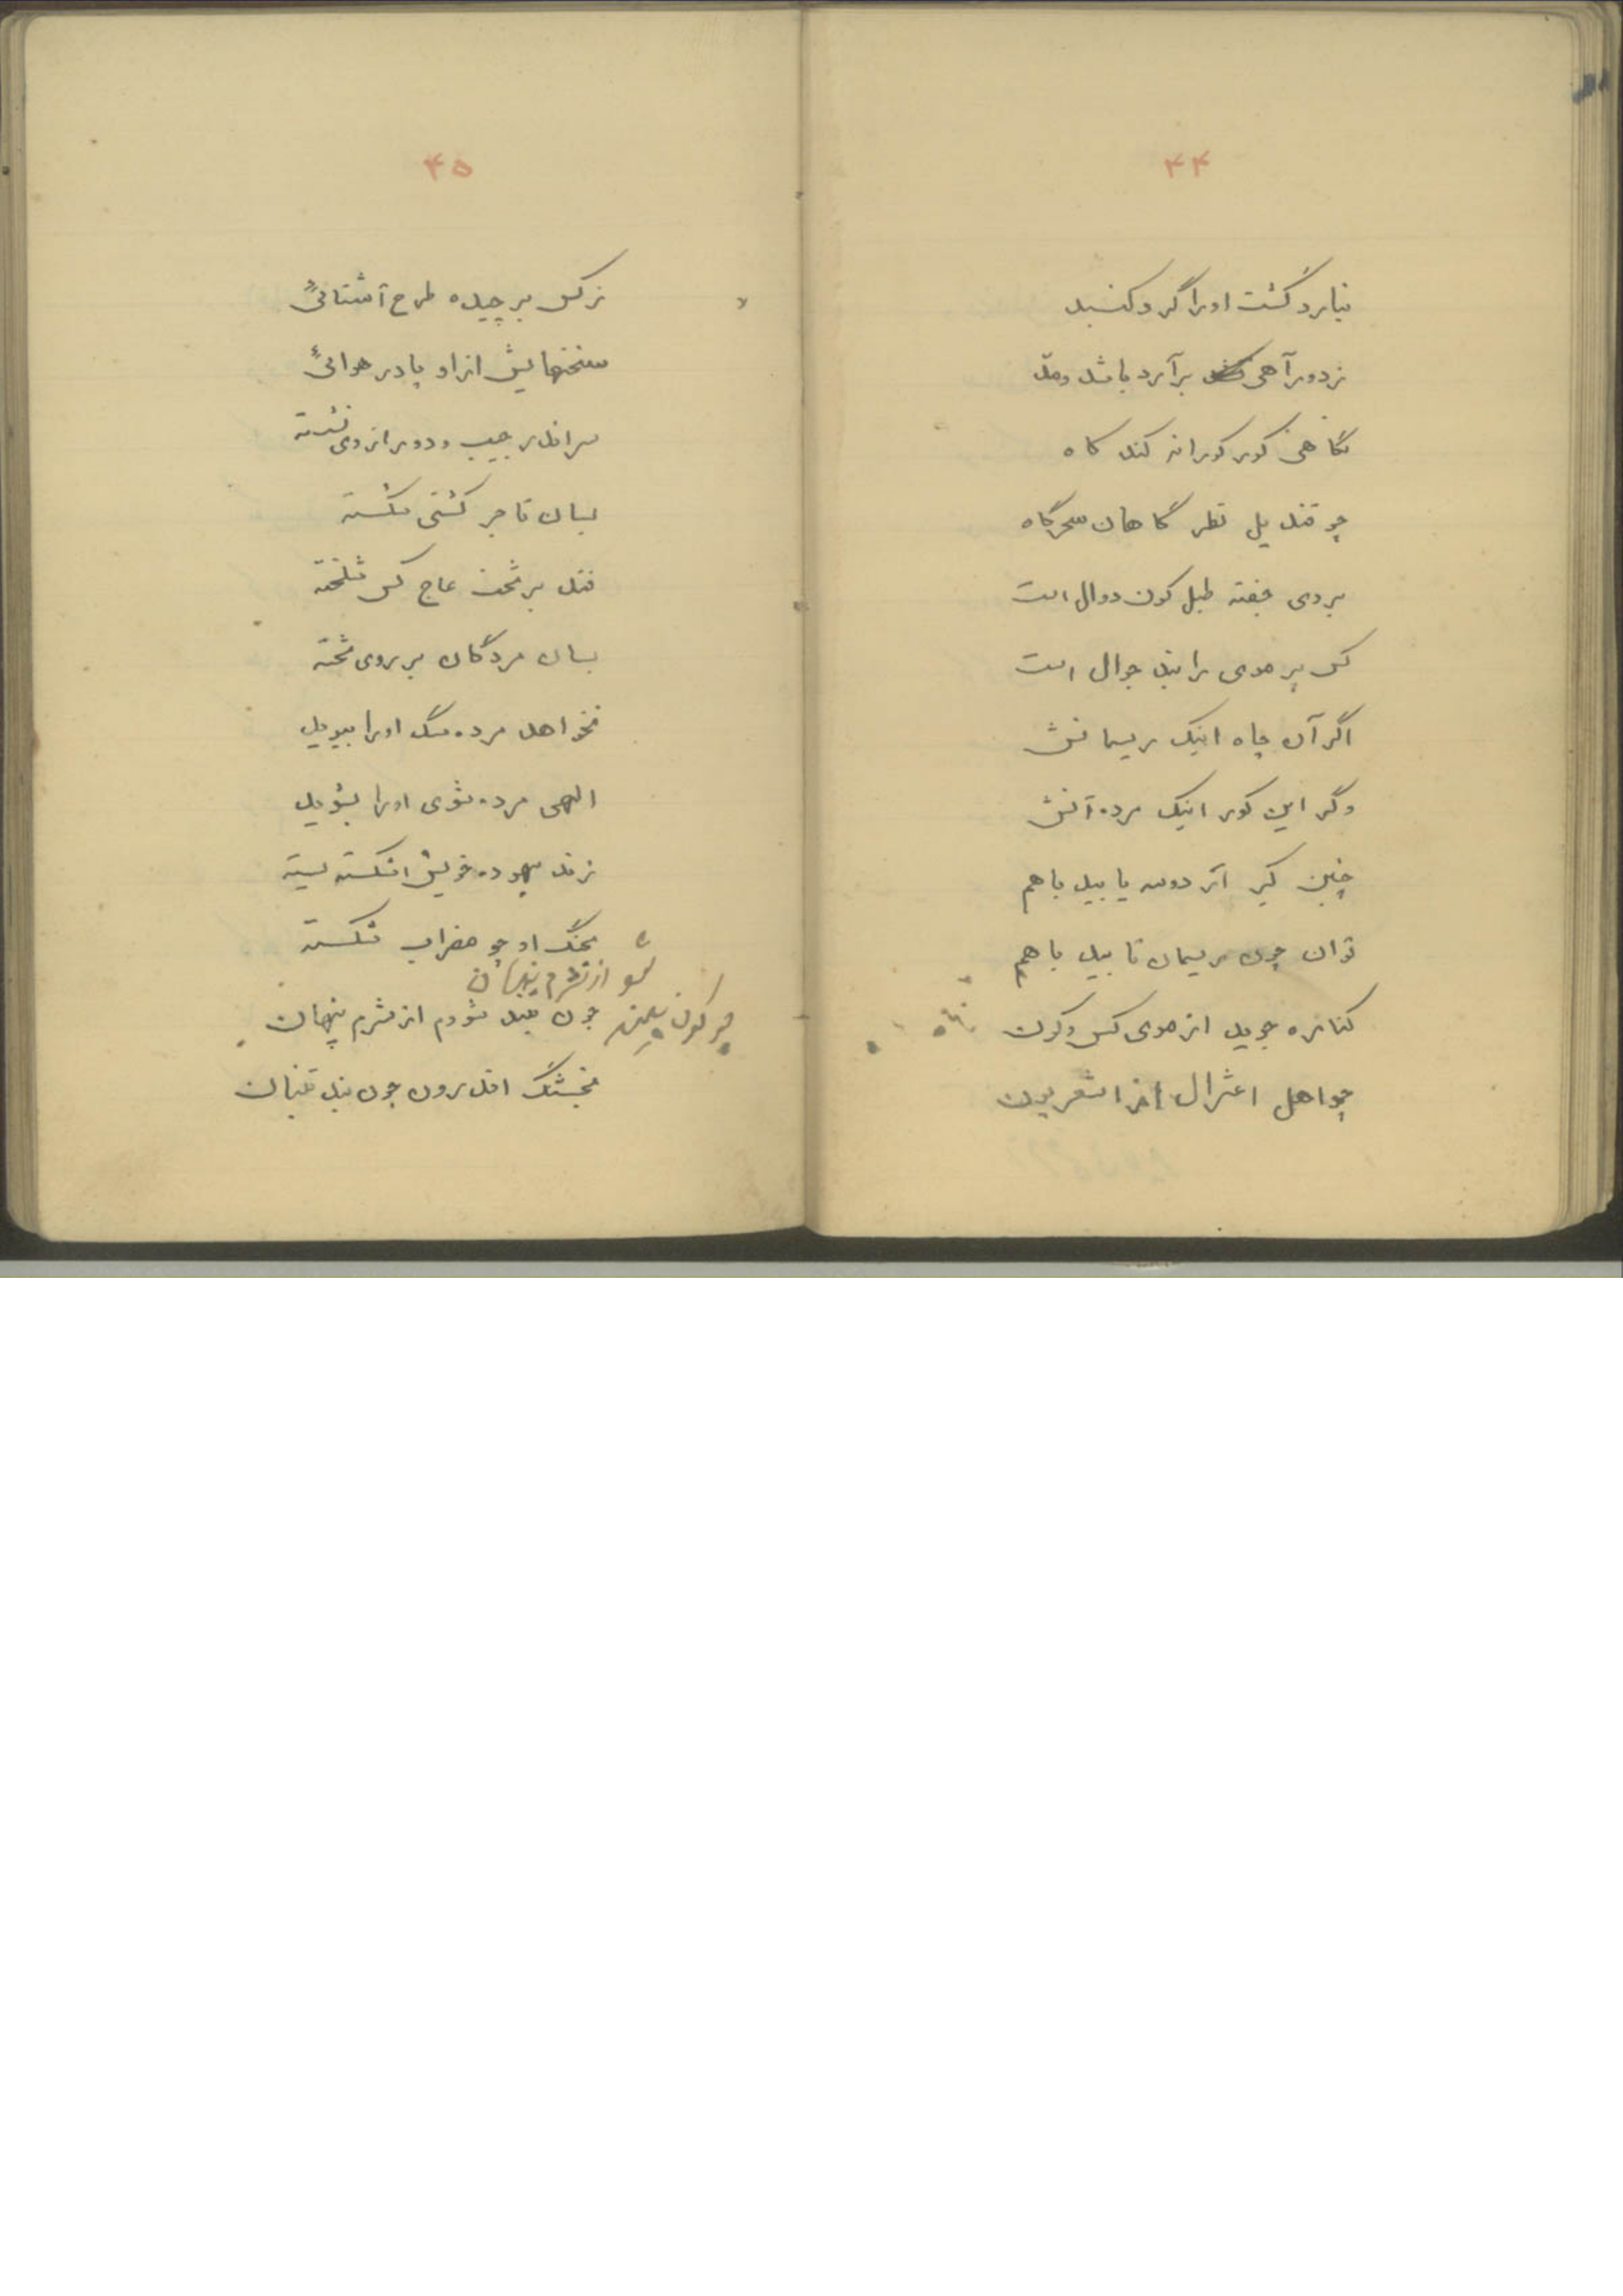 ۴۴
نیارد گشت او را گرد گنبد
ز دور آهی برآرد باشد و مد
نگاهی کور کورانه کند گاه
چو قندیل نظر گاهان سحرگاه
بروی جفته طبل کون دوال است
کس پر موی را بند جوال است
اگر آن چاه اینک ریسمانش
وگر این کور اینک مرده آنش
چنین کیر ار دوسه یابید باهم
توان چون ریسمان تابید باهم
کناره جوید از موی کس و کون
چو اهل اعتزال از اشعریون
۴۵
ز کس برچیده طرح آشنائی
سخنهایش از او پا در هوائی
سر اندر جیب و دور از وی نشسته
بسان تاجر کشتی شکسته
فتد بر تخت عاج کس شلخته
بسان مردگان بر روی تخته
نخواهد مرده سگ او را ببوید
الهی مرده شوی او را بشوید
زند بیهوده خویش افکنده بسته
بچنگ او چو مضراب شکسته
شو از شرم پنهان
چون بند شودم از شرم پنهان
بخشتک اندرون چون بند تنبان